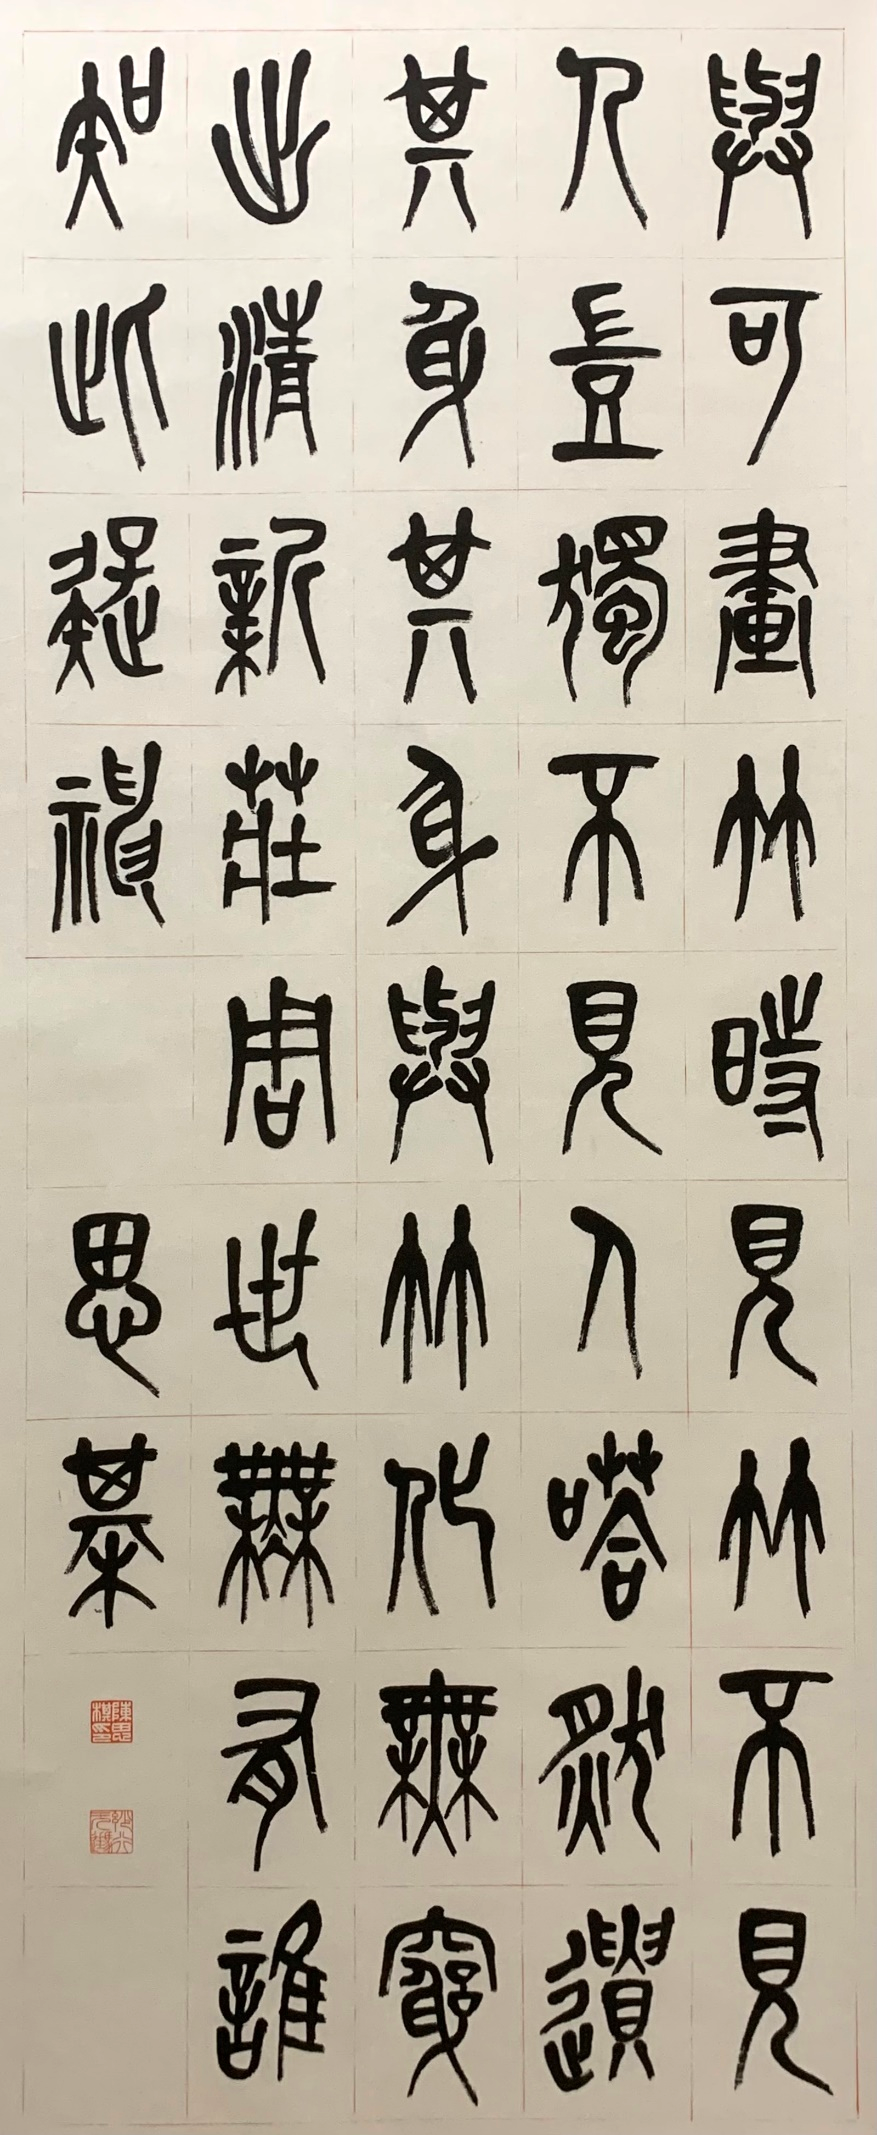 與可畫竹時見竹不見
人豈獨不見人嗒然遺
其身其身與竹化無窮
出清新莊周世無有誰
知此疑神
思棊
陳思棋印